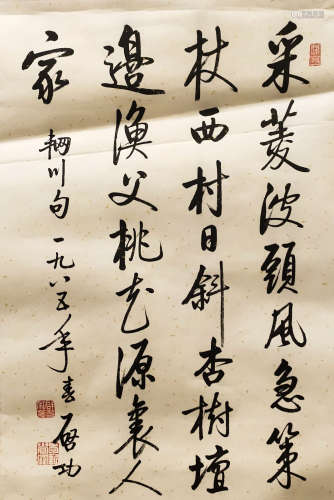 采菱波頭風急策
杖西村日斜杏樹壇
邊漁父桃花源裏人
家
輞川句一九八五年春啟功